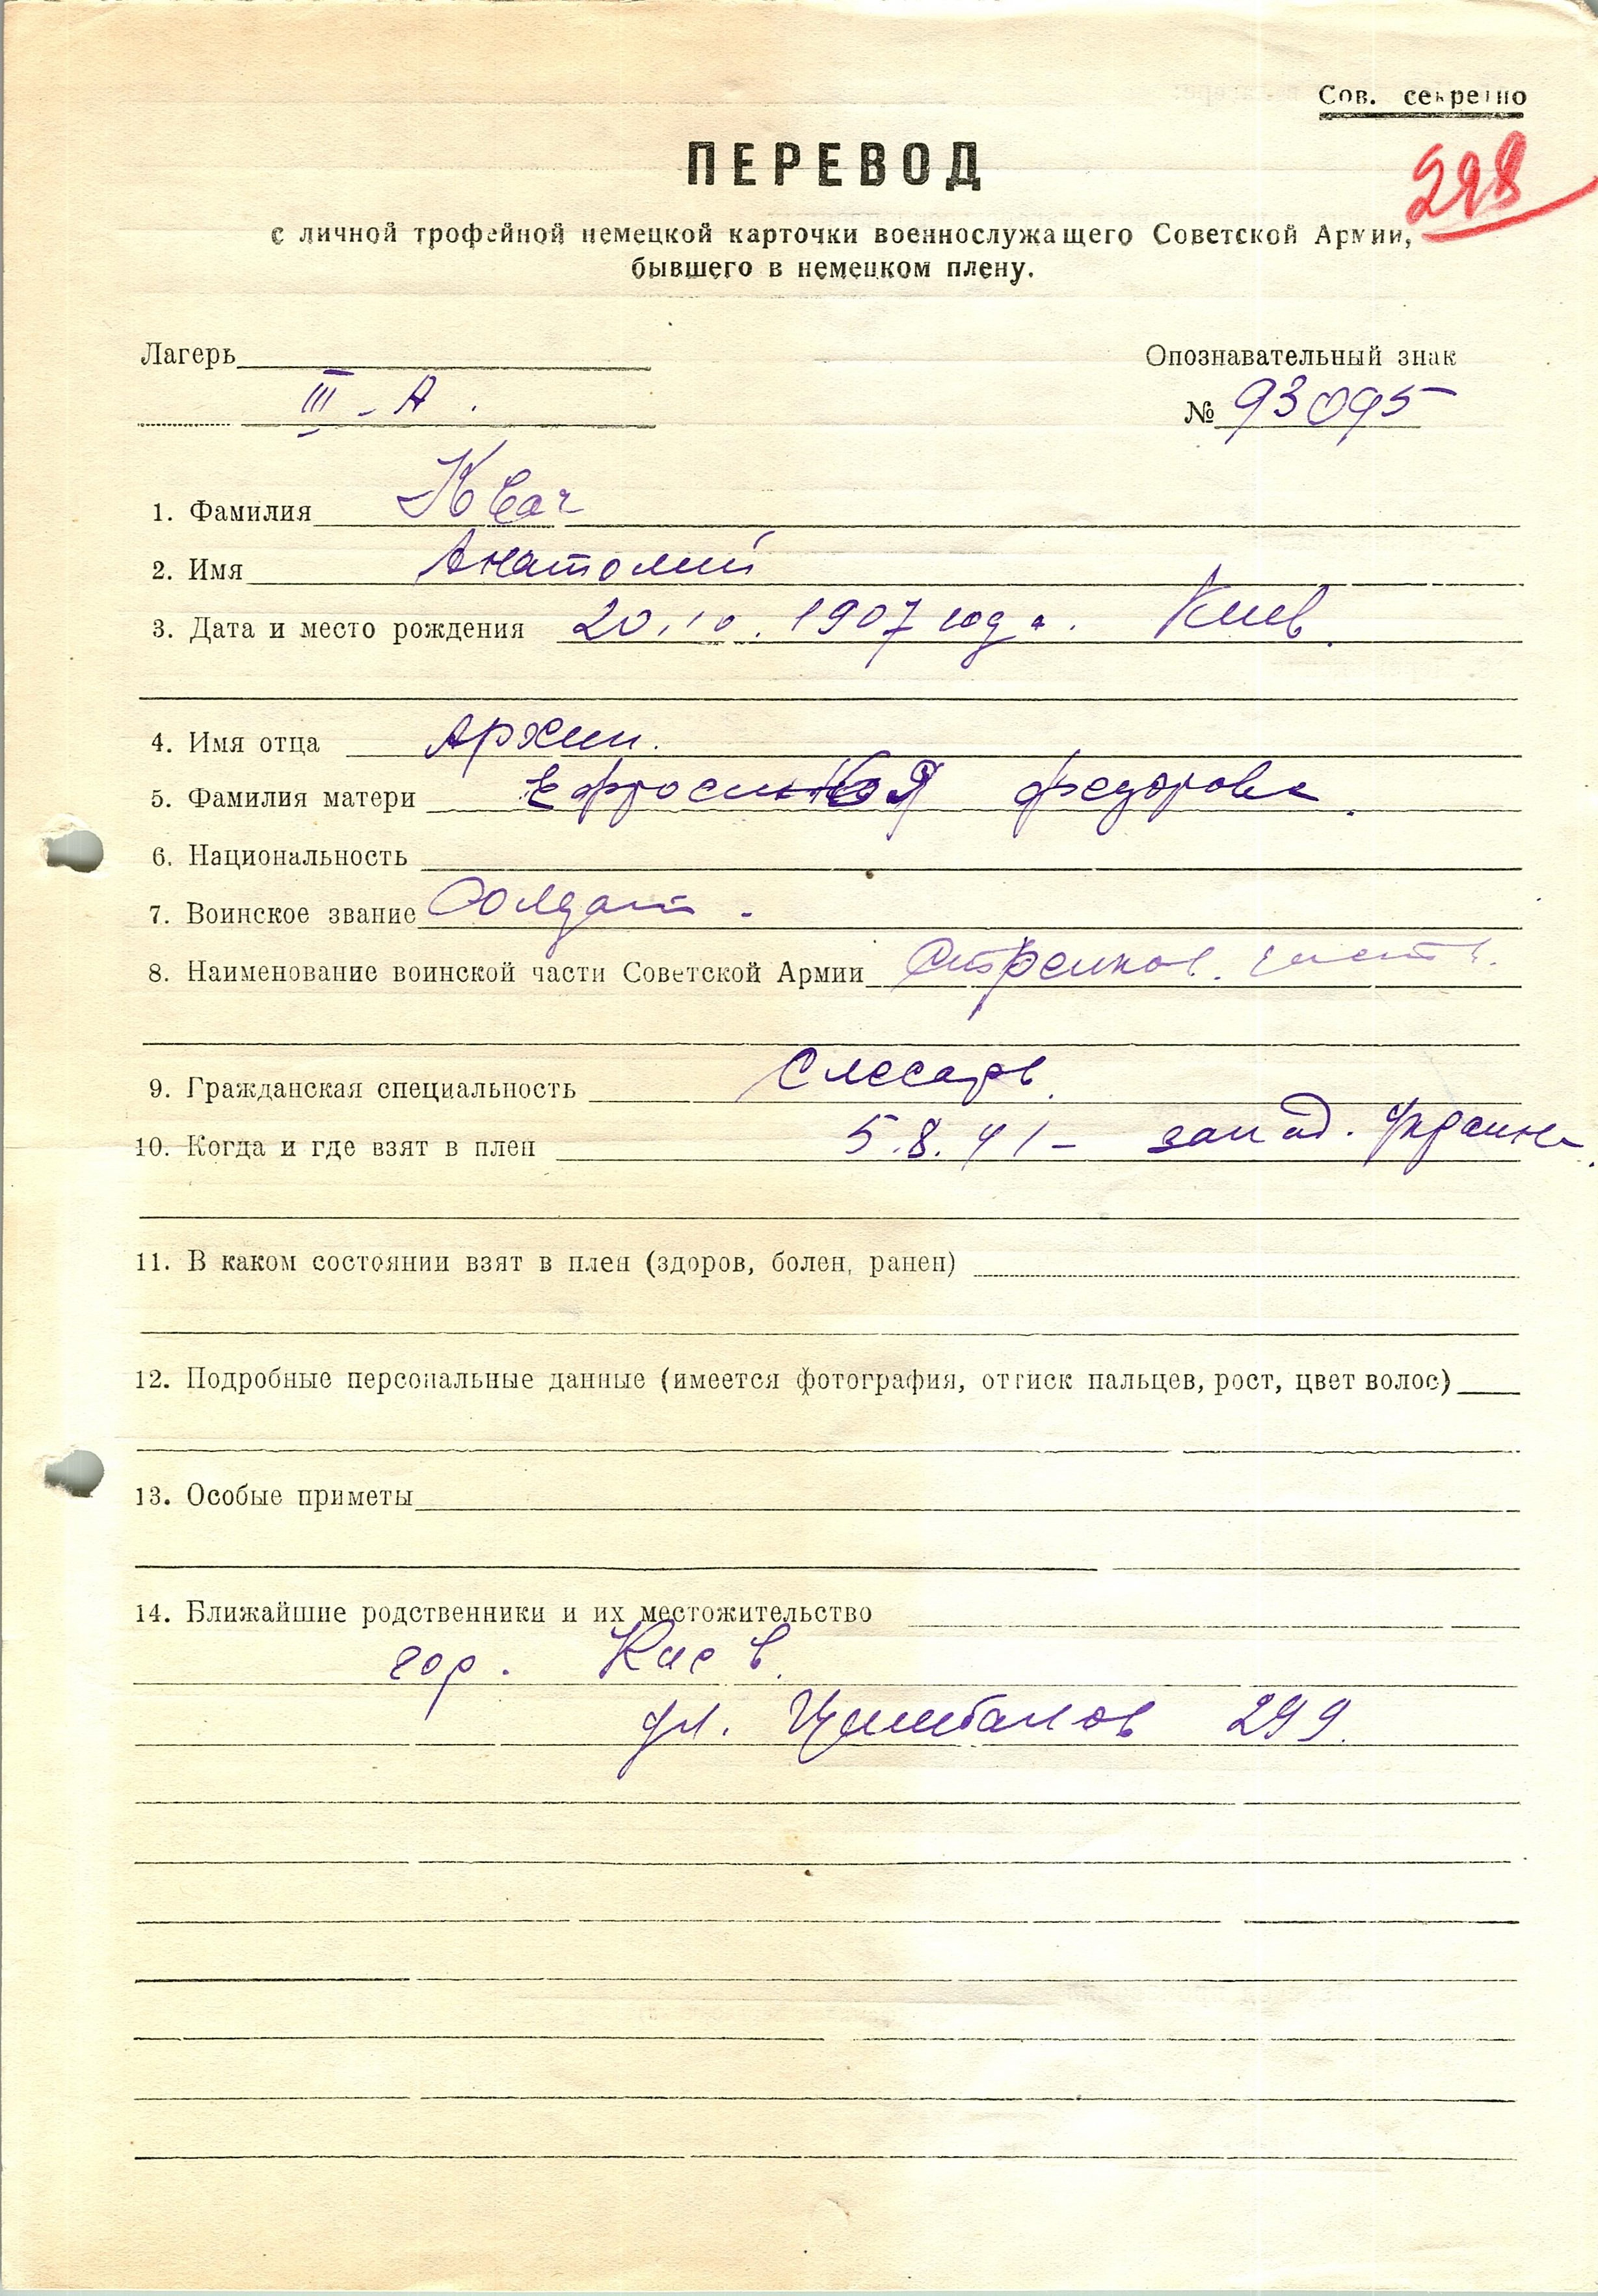 Сов. секретно
298
ПЕРЕВОД
с личной трофейной немецкой карточки военнослужащего Советской Армии,
бывшего в немецком плену.
Лагерь
Опознавательный знак
III - А.
№ 93095
1. Фамилия Квач
2. Имя Анатолий
3. Дата и место рождения 20.10.1907 года. Киев.
4. Имя отца Архип.
5. Фамилия матери Федорова.
6. Национальность
7. Воинское звание Солдат.
8. Наименование воинской части Советской Армии Стрелков. часть.
9. Гражданская специальность Слесарь.
10. Когда и где взят в плен 5.8.41 - запад. Украина.
11. В каком состоянии взят в плен (здоров, болен, ранен)
12. Подробные персональные данные (имеется фотография, оттиск пальцев, рост, цвет волос)
13. Особые приметы
14. Ближайшие родственники и их местожительство
гор. Киев.
ул. Цимбалов 299.